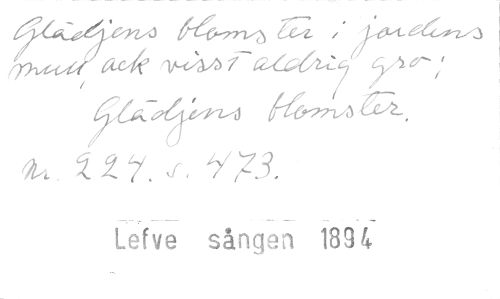 Glädjens blomster i jordens
mull, ack visst aldrig gro;
Glädjens blomster.
Nr. 224. s. 473.
Lefve sången 1894